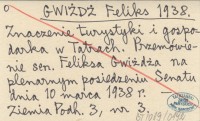 GWIŻDŻ Feliks 1938.
Znaczenie turystyki i gospo-
darka w Tatrach. Przemówie-
nie sen. Feliksa Gwiżdża na
plenarnym posiedzeniu Senatu
dnia 10 marca 1938 r.
Ziemia Podh. 3, nr. 3.